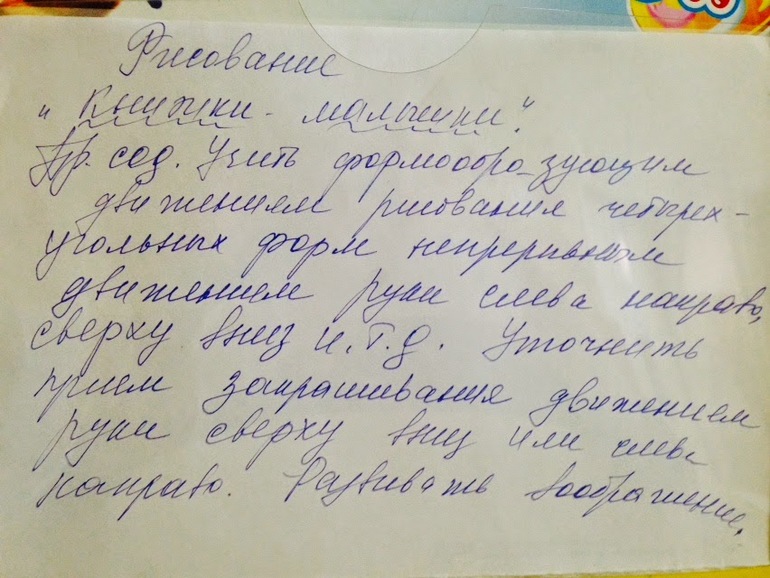 Рисование
„Книжки - малышки".
Пр. сод. Учить формообра-зующим
движениям рисования четырех-
угольных форм непрерывным
движением руки слева направо,
сверху вниз и.т.д. Уточнить
прием закрашивания движением
руки сверху вниз или слева
направо. Развивать воображение.